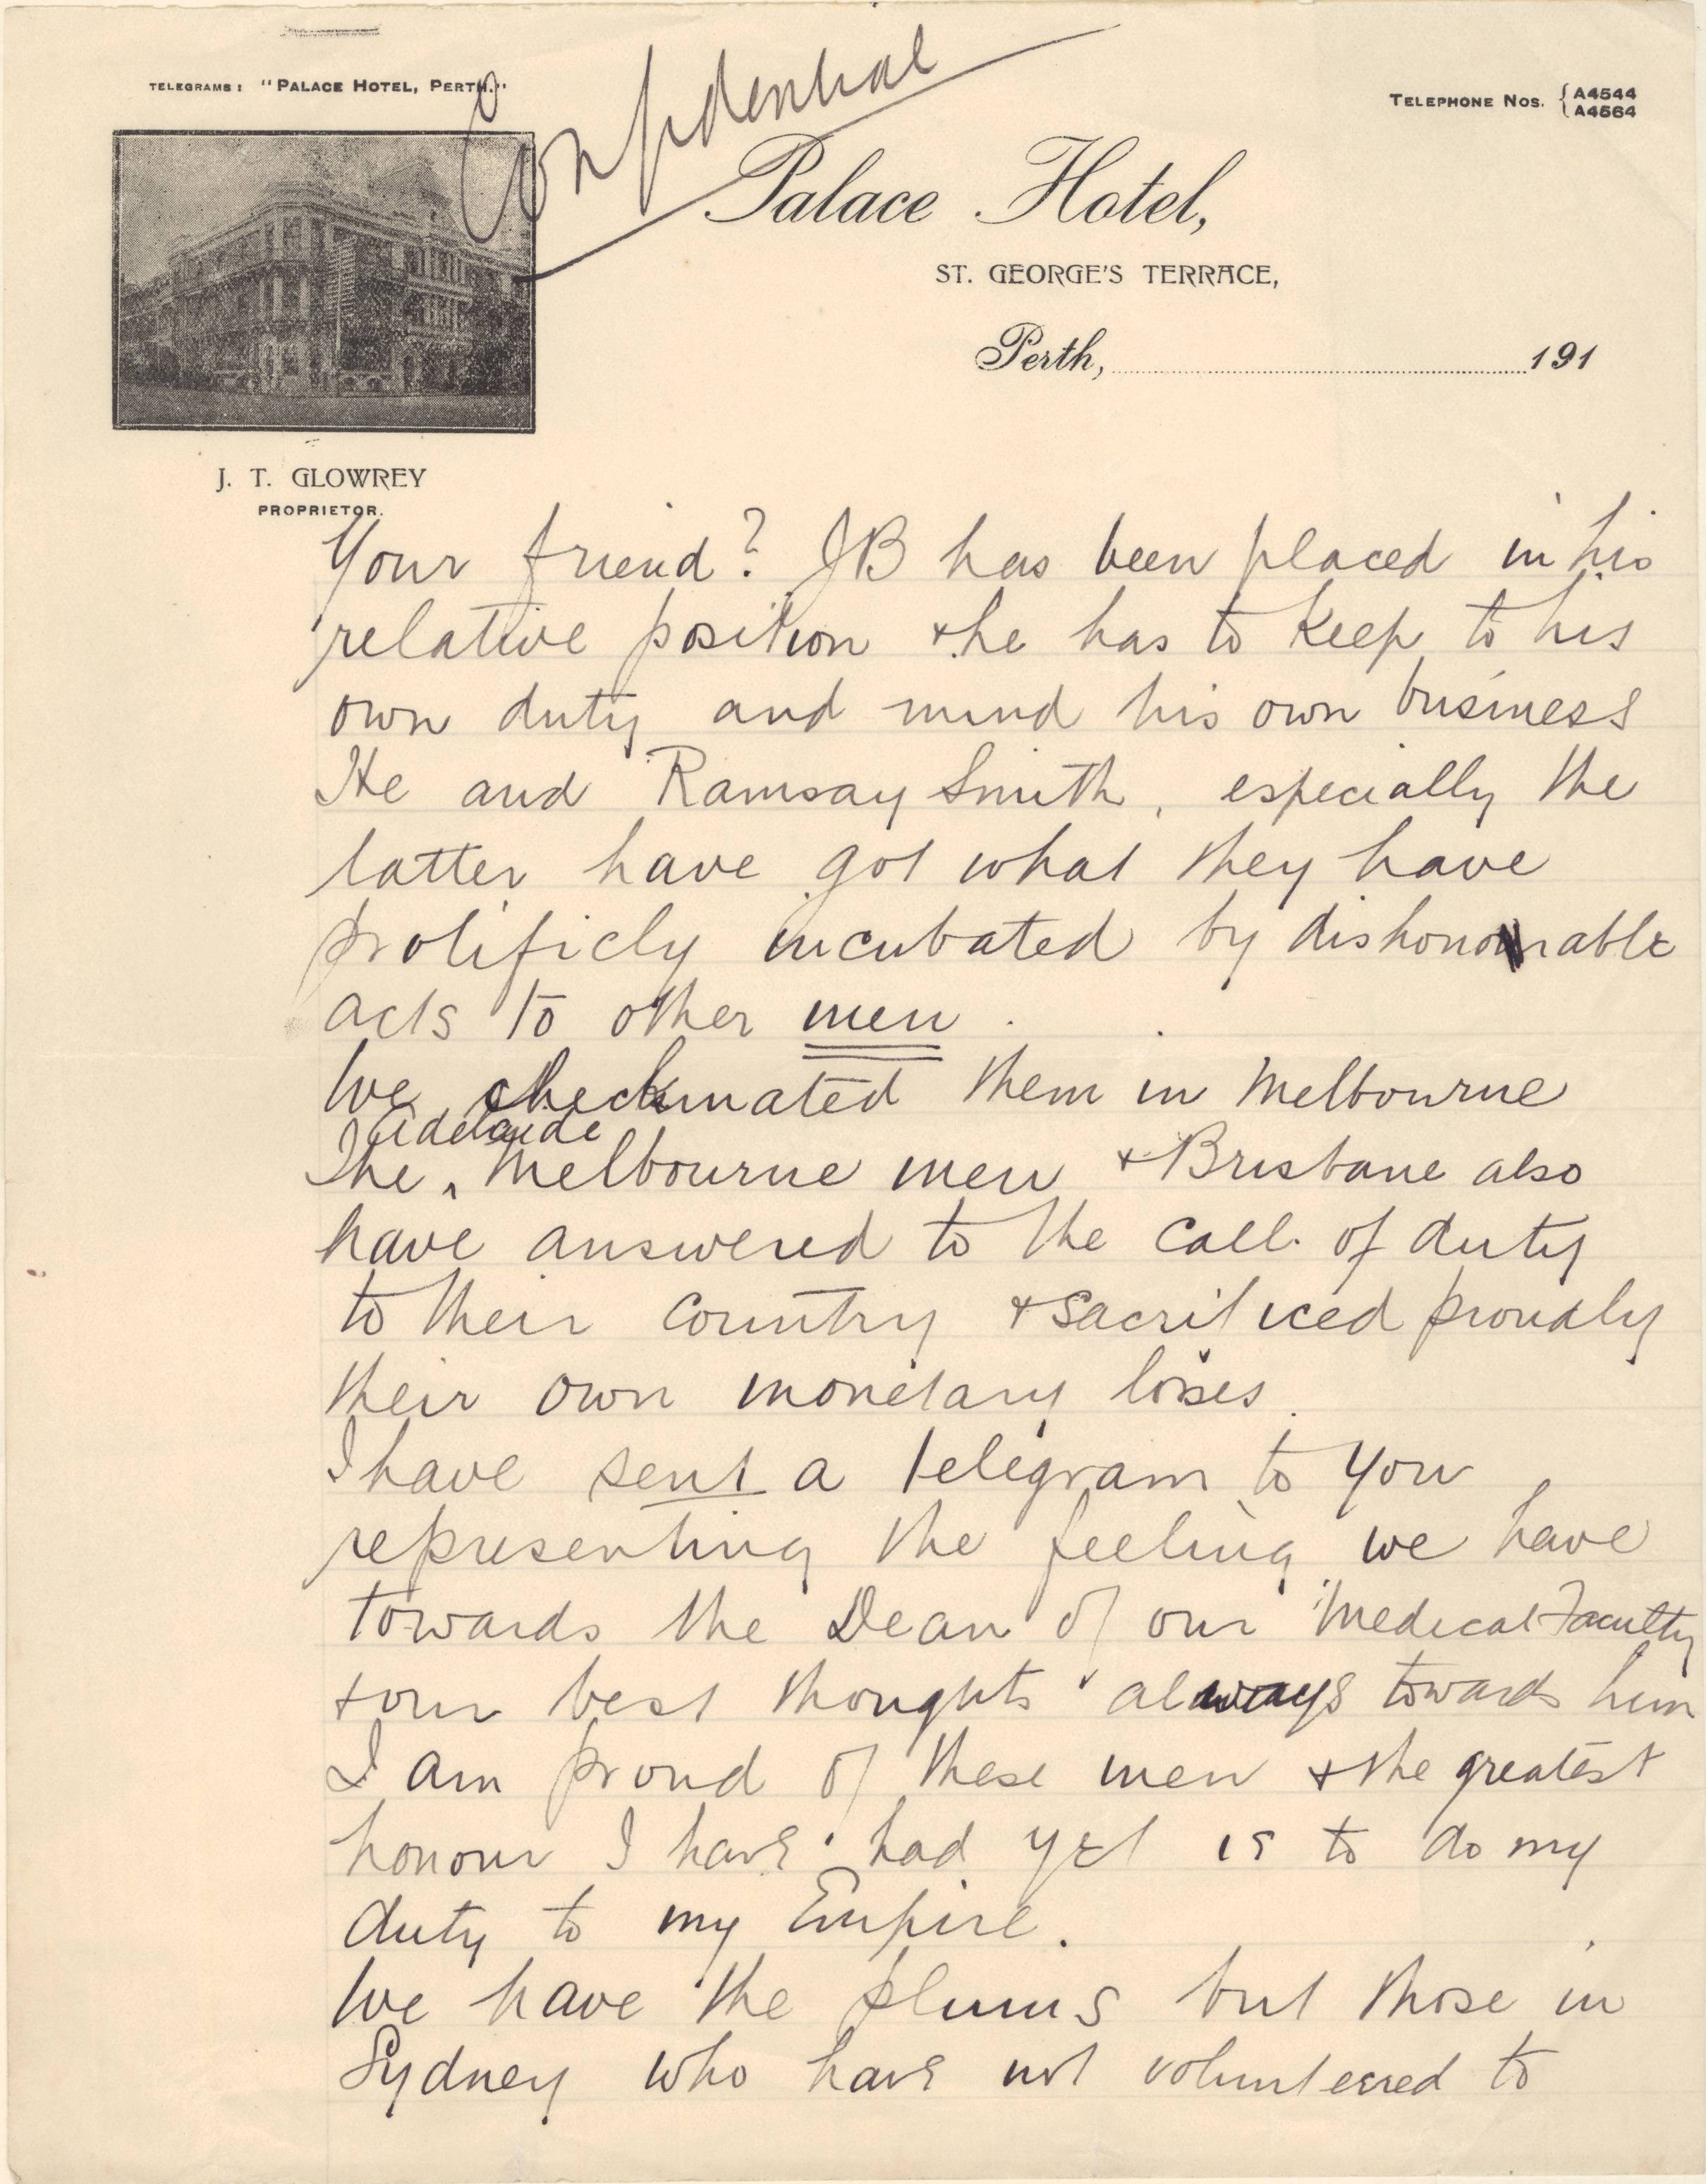 TELEGRAMS: "PALACE HOTEL, PERTH."
Confidential
TELEPHONE NOS. { A4544
A4564
Palace Hotel,
ST. GEORGE'S TERRACE,
Perth, 191
J. T. GLOWREY
PROPRIETOR.
Your friend? JB has been placed in his
relative position & he has to keep to his
own duty and mind his own business
He and Ramsay Smith, especially the
latter have got what they have
prolificly incubated by dishonourable
acts to other men.
We checkmated them in Melbourne
Adelaide
The ‸ Melbourne men & Brisbane also
have answered to the call of duty
to their country & sacrificed proudly
their own monetary losses.
I have sent a telegram to you
representing the feeling we have
towards the Dean of our Medical Faculty
& our best thoughts always towards him
I am proud of these men & the greatest
honour I have had yet is to do my
duty to my Empire.
We have the plums but those in
Sydney who have not volunteered to